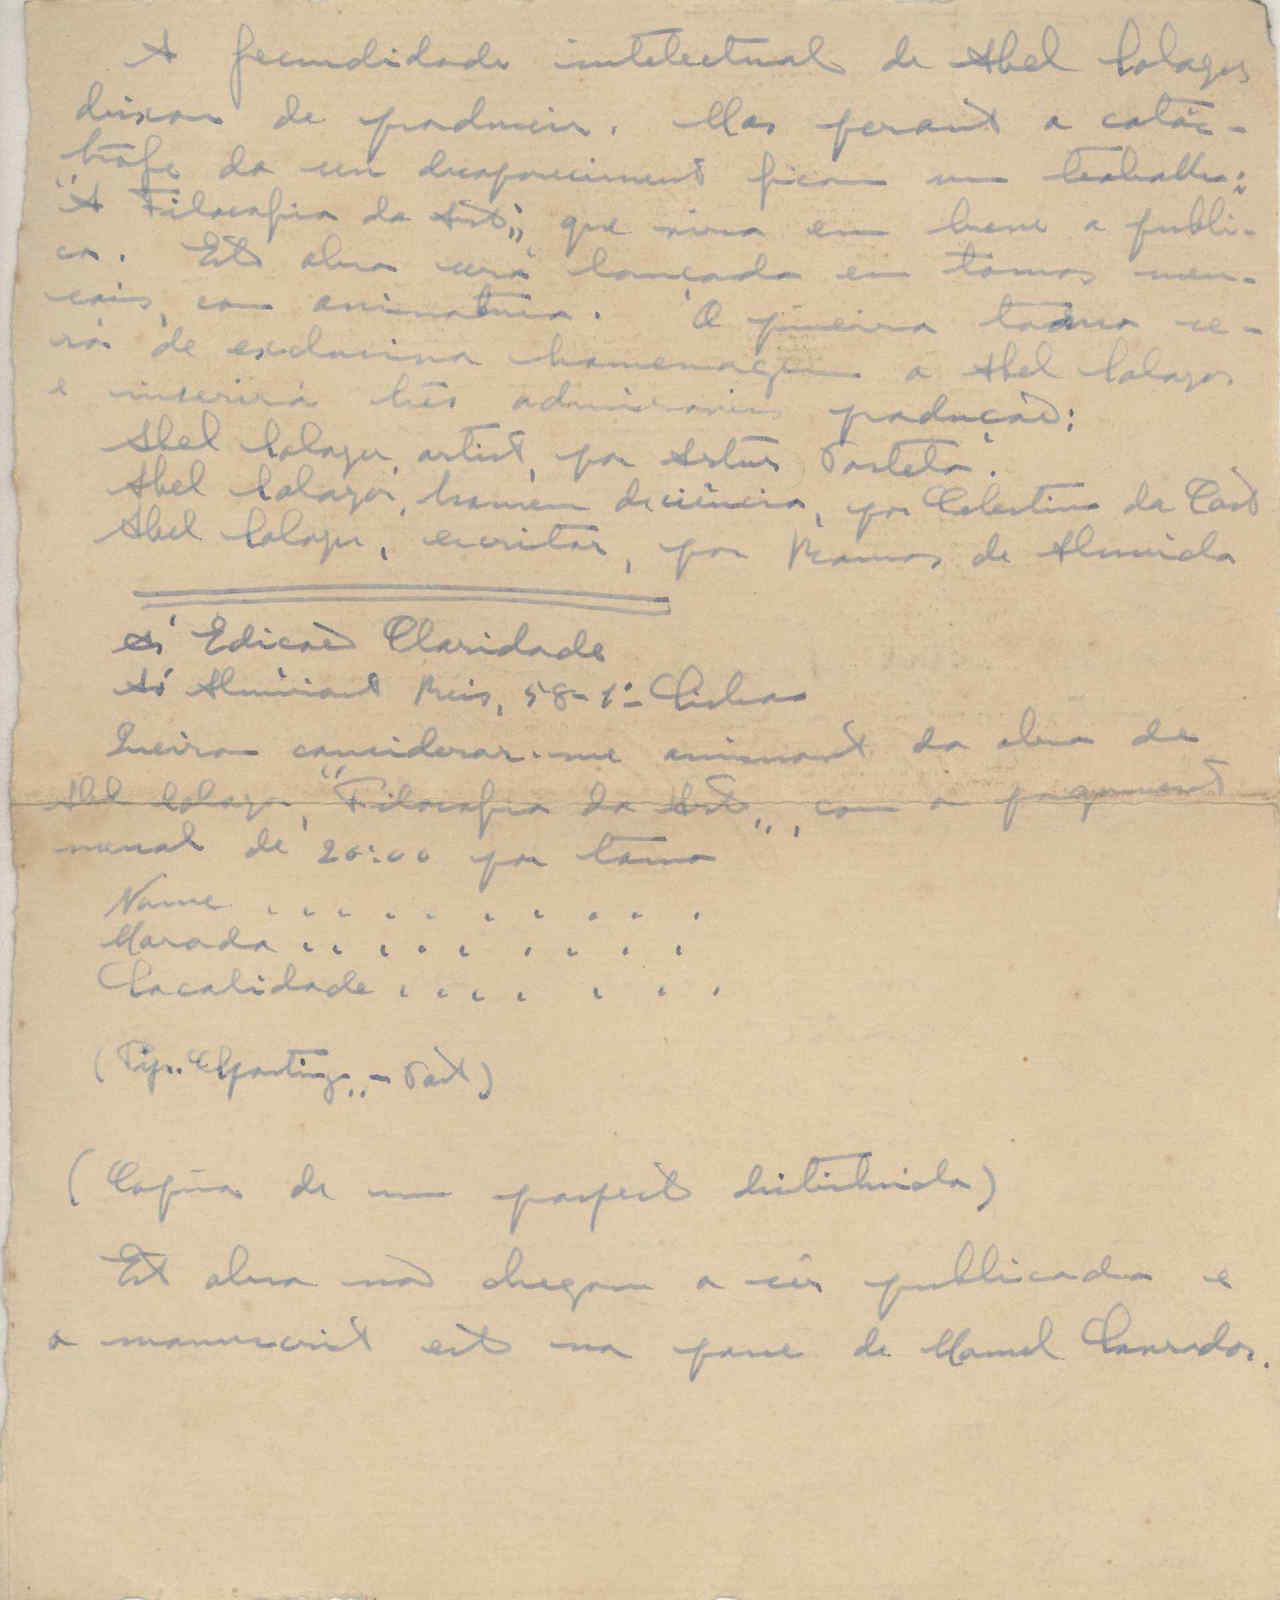 A fecundidade intelectual de Abel Salazar
deixou de produzir. Mas perante a catás-
trofe do seu desaparecimento ficou um trabalho:
"A Filosofia da Arte", que virá em breve a públi-
co. Esta obra será lançada em tomos men-
sais, com assinatura. O primeiro tomo se-
rá de exclusiva homenagem a Abel Salazar
e inserirá três admiraveis produções:
Abel Salazar, artista, por Artur Portela.
Abel Salazar, homem de ciência, por Celestino da Costa
Abel Salazar, escritor, por Ramos de Almeida
Às Edições Claridade
Av Almirante Reis, 58-1º Lisboa
Queiram considerar-me assinante da obra de
Abel Salazar, "Filosofia da Arte", com o pagamento
mensal de 20:00 por tomo
Nome . . . . . . . . . .
Morada . . . . . . . . .
Localidade . . . . . . . .
(Tip. - Porto)
(Copia de um prospecto distribuido)
Esta obra não chegou a sêr publicada e
o manuscrito está na posse de Manuel